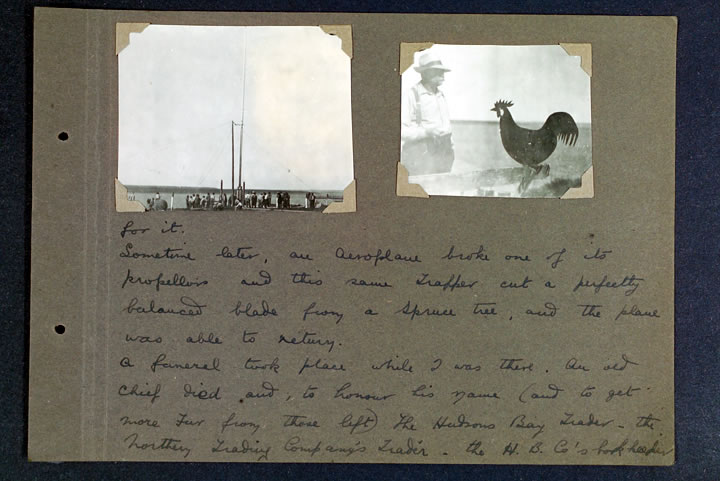 for it.
Sometime later, an Aeroplane broke one of its
propellors and this same Trapper cut a perfectly
balanced blade from a Spruce tree, and the plane
was able to return.
A funeral took place while I was there. An old
chief died and, to honour his name (and to get
more Fur from those left) The Hudsons Bay Trader - the
Northern Trading Company's Trader - the H. B. Co's bookkeeper